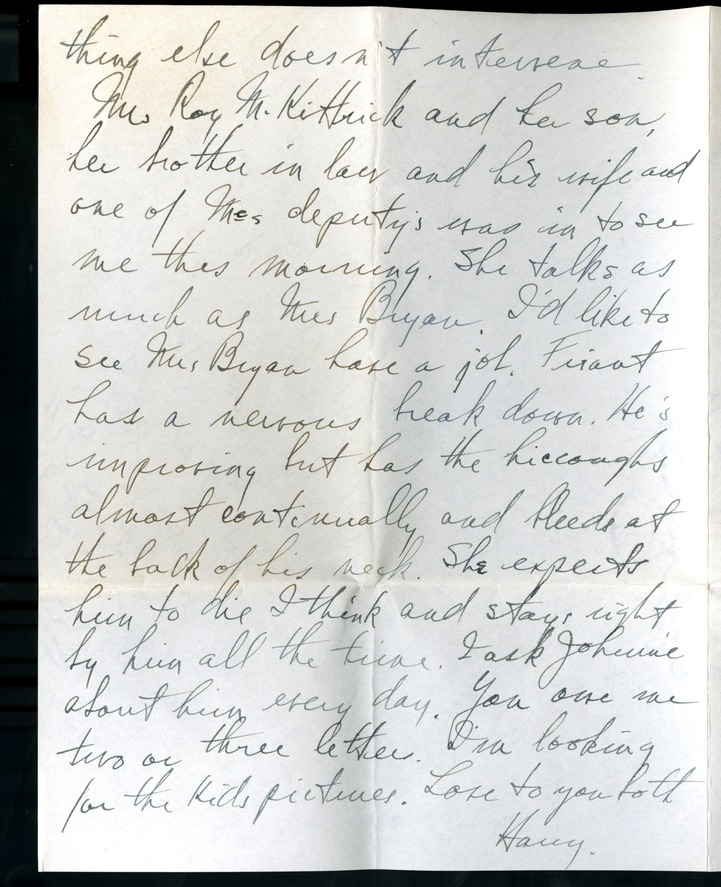 thing else doesn't intervene.
Mrs Roy McKittrick and her son,
her brother in law and his wife and
one of Mcs deputy's was in to see
me this morning. She talks as
much as Mrs Bryan. I'd like to
see Mrs Bryan have a job. Finant
has a nervous break down. He's
improving but has the hiccoughs
almost continually and bleeds at
the back of his neck. She expects
him to die I think and stays right
by him all the time. I ask Johnnie
about him every day. You owe me
two or three letters. I'm looking
for the kids pictures. Love to you both
Harry.